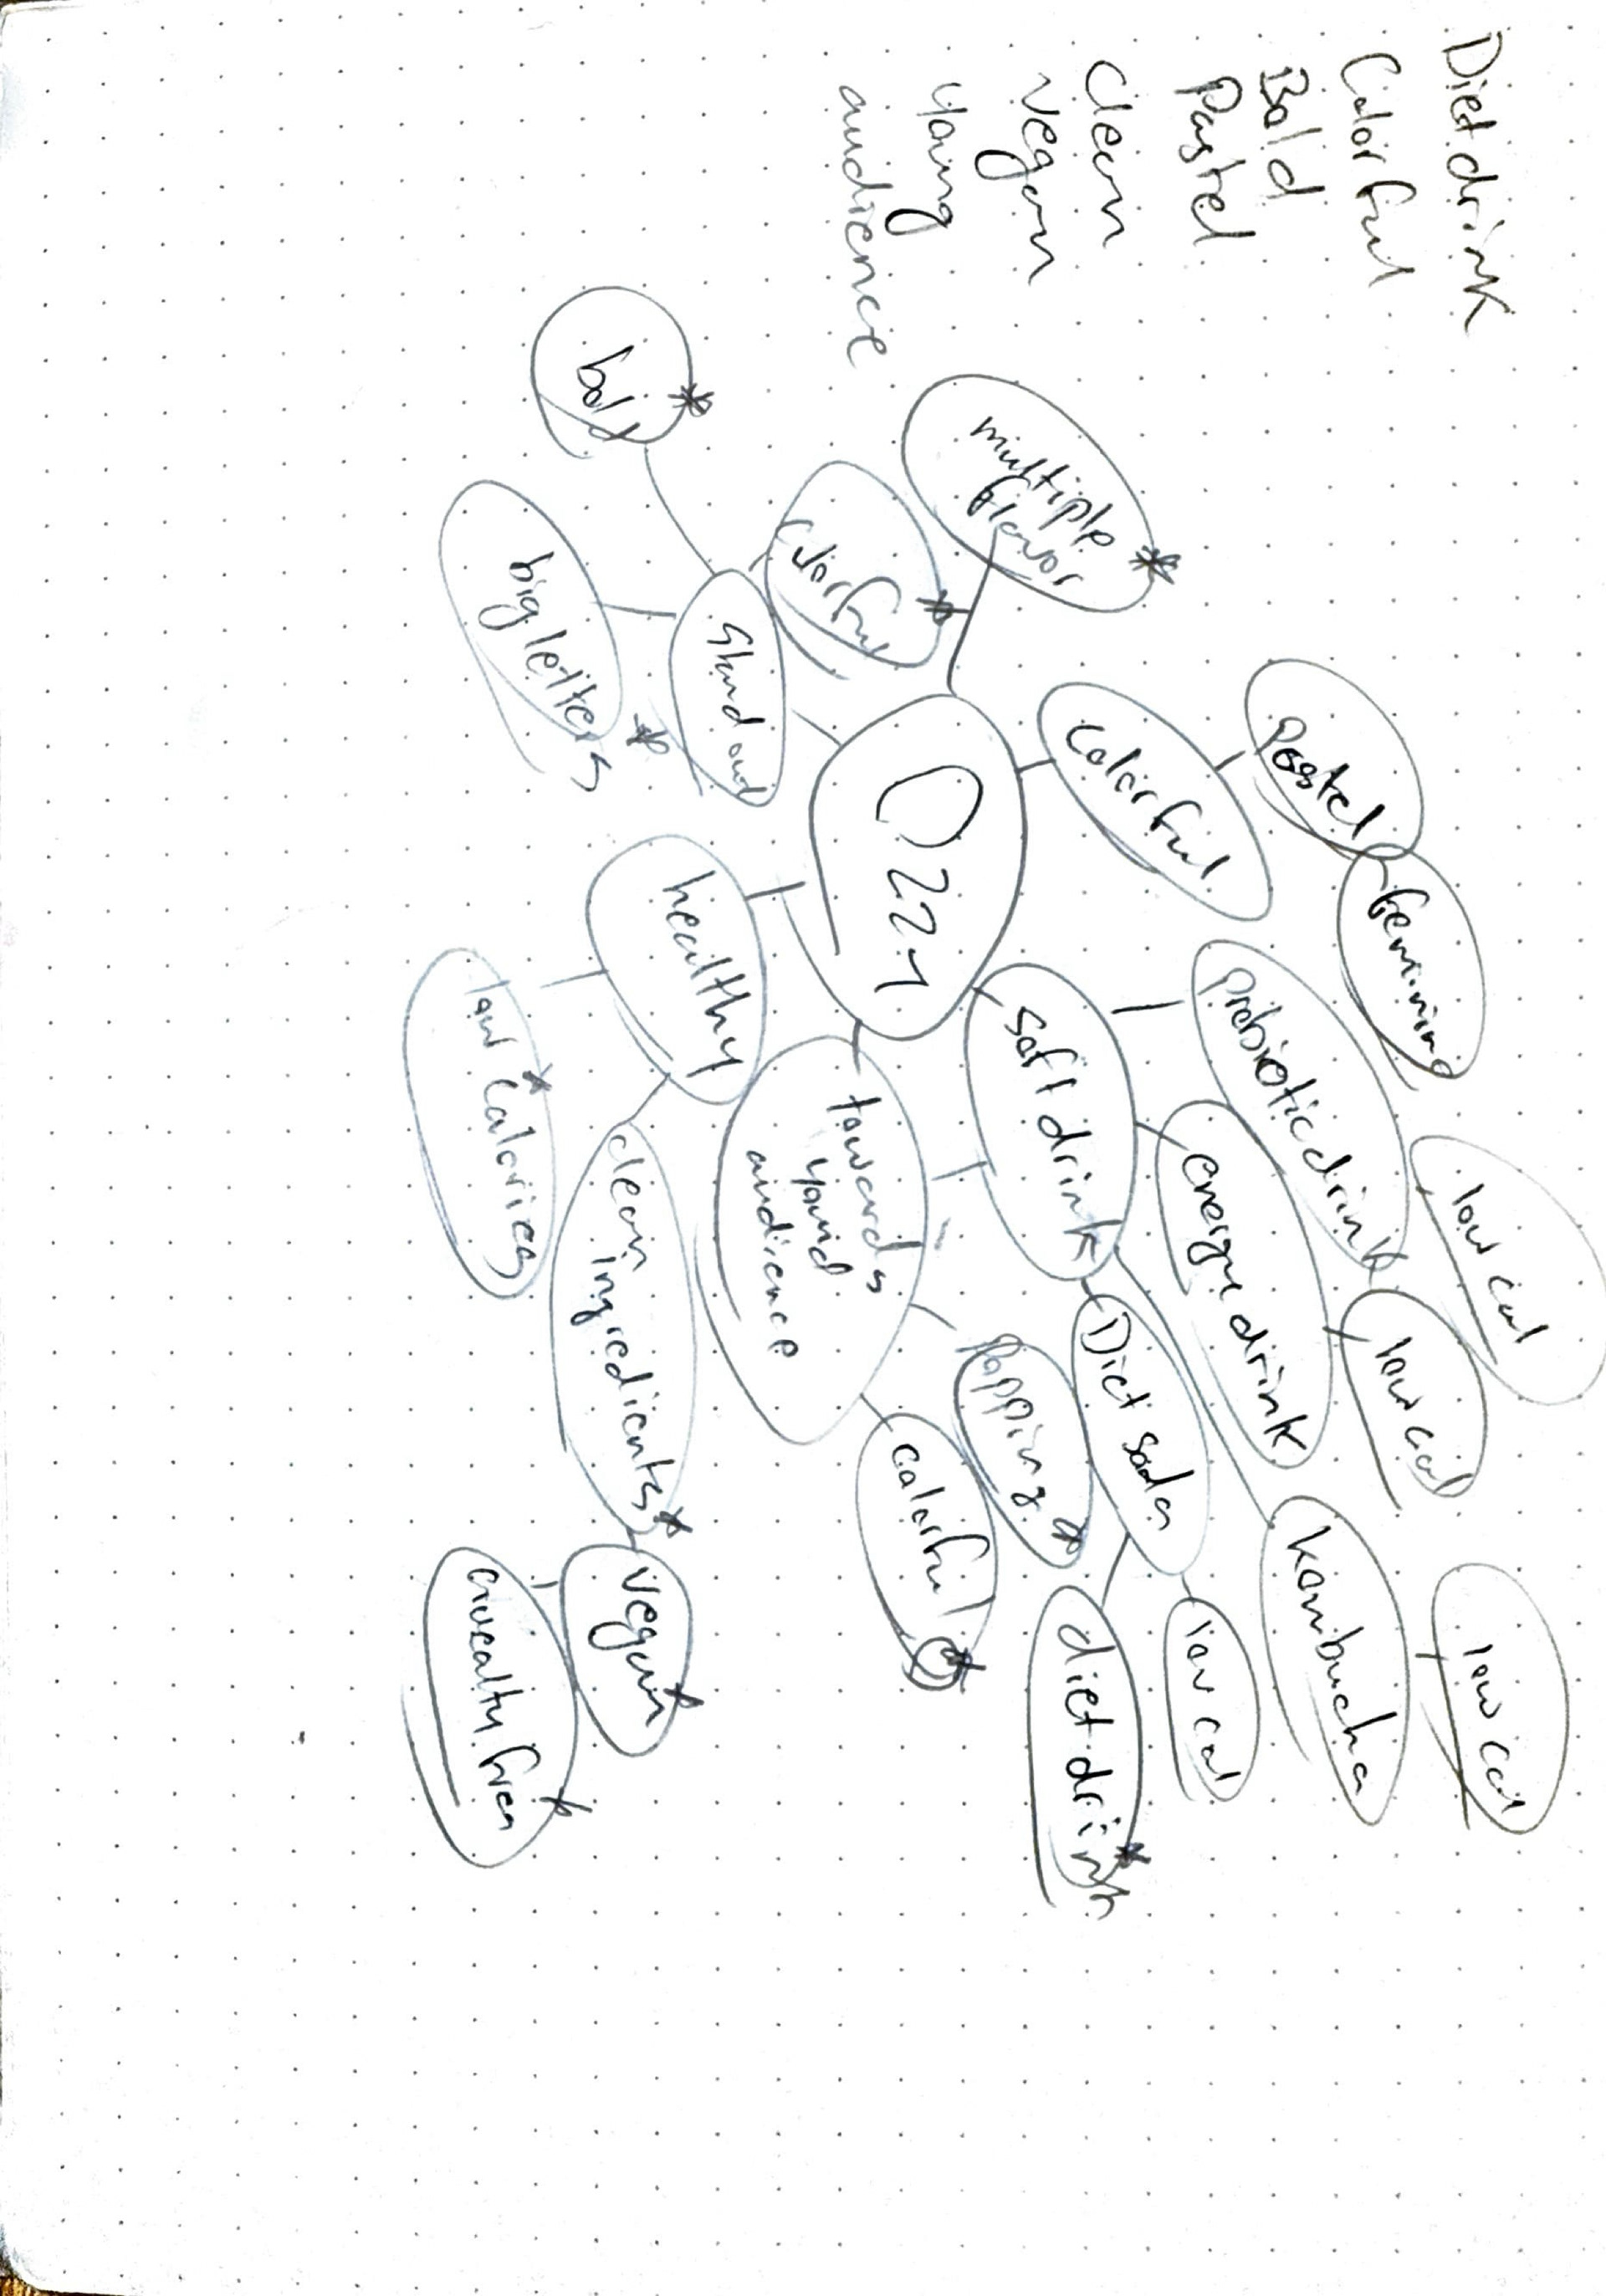 Diet drink
Colorful
Bold
Pastel
Clean
vegan
young
audience
multiple
flavor
colorful
bold
big letters
Stand out
Ozzy
Colorful
pastel
feminine
prebiotic drink
low cal
soft drink
energy drink
low cal
Diet soda
low cal
diet drink
kombucha
low cal
healthy
low calories
clean
ingredients
vegan
towards
audience
popping
colorful